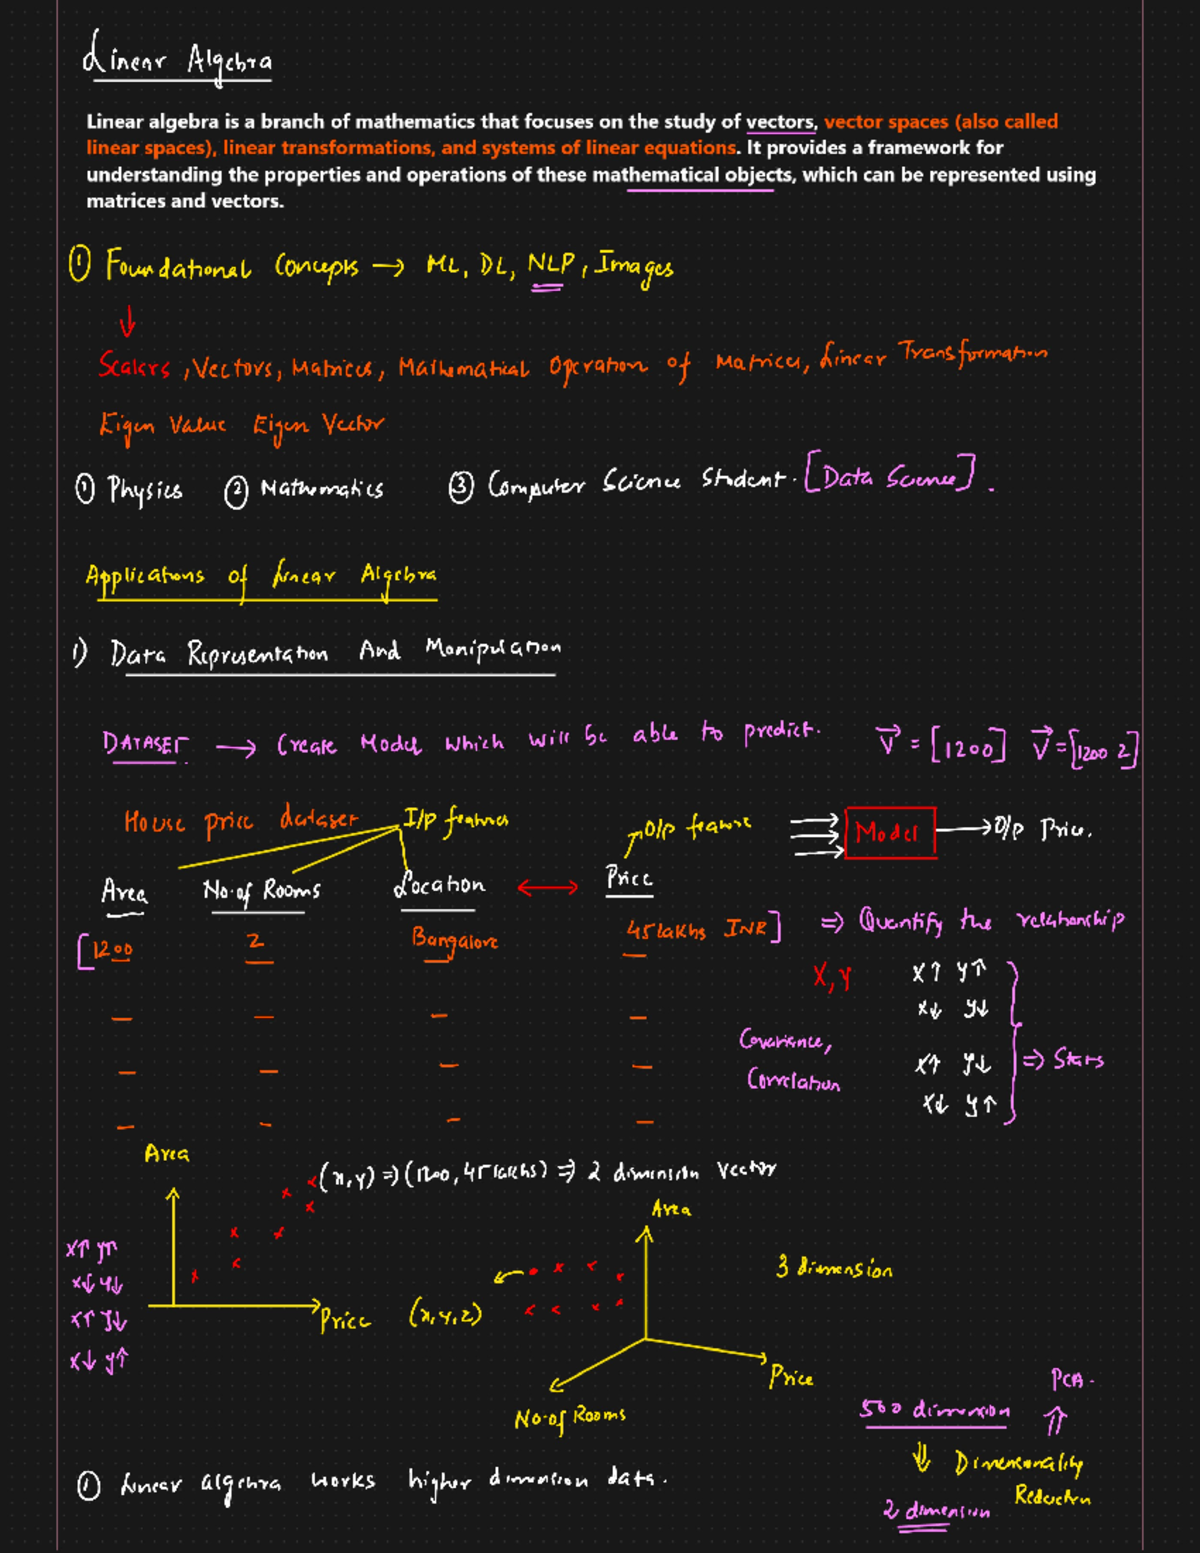 Linear Algebra
Linear algebra is a branch of mathematics that focuses on the study of vectors, vector spaces (also called
linear spaces), linear transformations, and systems of linear equations. It provides a framework for
understanding the properties and operations of these mathematical objects, which can be represented using
matrices and vectors.
① Foundational Concepts → ML, DL, NLP, Images
↓
Scalers, Vectors, Matrices, Mathematical Operation of Matrices, Linear Transformation
Eigen Value Eigen Vector
① Physics ② Mathematics ③ Computer Science Student. [Data Science].
Applications of Linear Algebra
1) Data Representation And Manipulation
DATASET → Create Model which will be able to predict. V⃗ = [1200] V⃗ = [1200 2]
House price dataset I/p features O/p feature Model → O/p Price.
Area No. of Rooms Location ↔ Price
[1200 2 Bangalore 45 lakhs INR] ⇒ Quantify the relationship
X, Y X↑ Y↑
X↓ Y↓
Covariance, X↑ Y↓ ⇒ Stats
Correlation X↓ Y↑
Area
(x, y) ⇒ (1200, 45 lakhs) ⇒ 2 dimension vector
Area
X↑ Y↑ 3 dimension
X↓ Y↓
X↑ Y↓ Price (x, y, z)
X↓ Y↑ Price
PCA.
No. of Rooms 500 dimension ⇑
⇓ Dimensionality
① Linear algebra works higher dimension data. Reduction
2 dimension